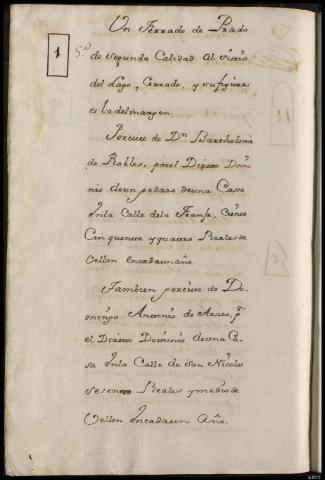 Un Ferrado de Prado
1 S.da
de segunda Calidad al Sitio
del Lago, Cerrado, y su figura
es la del margen
Percive de Dn Bartholome
de Robles, por el Directo Domi
nio de un pedazo de una Casa
Inla Calle dela Franja, Ciento
Cinquenta y quatro Reales de
Vellon encadaun año.
Tambien percive de Do-
mingo Antonio de Arzeo, pr
el Directo Dominio deuna Ca-
sa Inla Calle de San Nicolas
sesenta Reales y medio de
Vellon Incadaun Año.